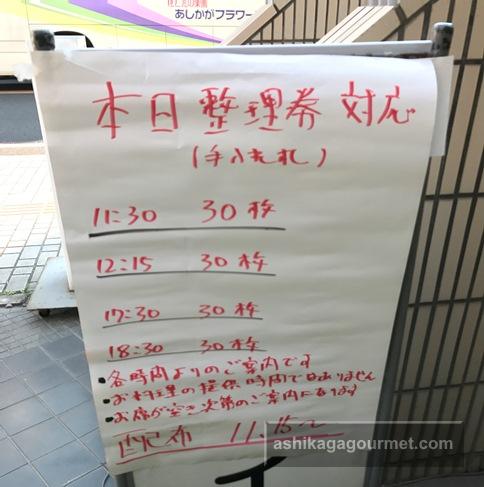 あしかがフラワー
本日整理券対応
11:30 30枚
12:15 30枚
17:30 30枚
18:30 30枚
・各時間よりのご案内です
・お料理の提供時間ではありません
・お席が空き次第のご案内になります
配布 11:15〜
ashikagagourmet.com